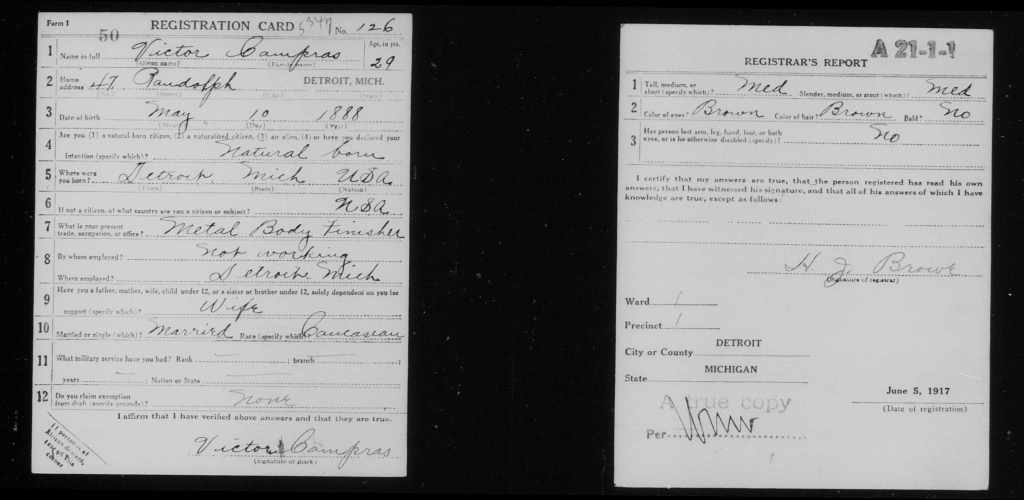 Form 1 REGISTRATION CARD 5347 No. 126
50
1 Name in full Victor Campras Age, in yrs. 29
(Given name) (Family name)
2 Home address 47 Randolph DETROIT, MICH.
3 Date of birth May 10 1888
(Month) (Day) (Year)
4 Are you (1) a natural-born citizen, (2) a naturalized citizen, (3) an alien, (4) or have you declared your
intention (specify which)? Natural born
5 Where were you born? Detroit Mich USA
(Town) (State) (Nation)
6 If not a citizen, of what country are you a citizen or subject? USA
7 What is your present trade, occupation, or office? Metal Body Finisher
8 By whom employed? Not working
Where employed? Detroit Mich
9 Have you a father, mother, wife, child under 12, or a sister or brother under 12, solely dependent on you for
support (specify which)? Wife
10 Married or single (which)? Married Race (specify which)? Caucasean
11 What military service have you had? Rank ; branch ;
years ; Nation or State
12 Do you claim exemption from draft (specify grounds)? None
I affirm that I have verified above answers and that they are true.
Victor Campras
(Signature or mark)
If person is of
African descent,
corner
A 21-1-1
REGISTRAR'S REPORT
1 Tall, medium, or short (specify which)? Med Slender, medium, or stout (which)? Med
2 Color of eyes? Brown Color of hair? Brown Bald? No
3 Has person lost arm, leg, hand, foot, or both eyes, or is he otherwise disabled (specify)? No
I certify that my answers are true, that the person registered has read his own
answers, that I have witnessed his signature, and that all of his answers of which I have
knowledge are true, except as follows:
H J Brown
(Signature of registrar)
Ward 1
Precinct 1
City or County DETROIT
State MICHIGAN
June 5, 1917
(Date of registration)
A true copy
Per